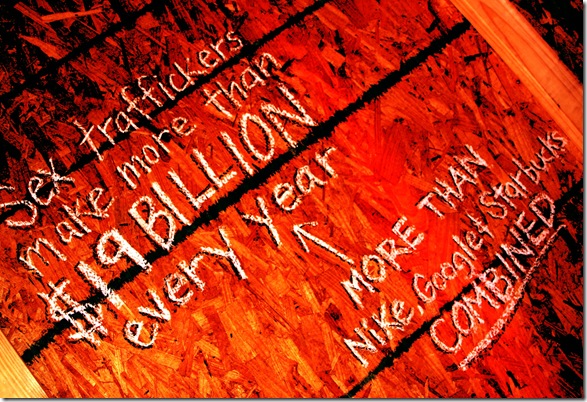 Sex traffickers
make more than
$19 BILLION
every year
MORE THAN
Nike, Google & Starbucks
COMBINED